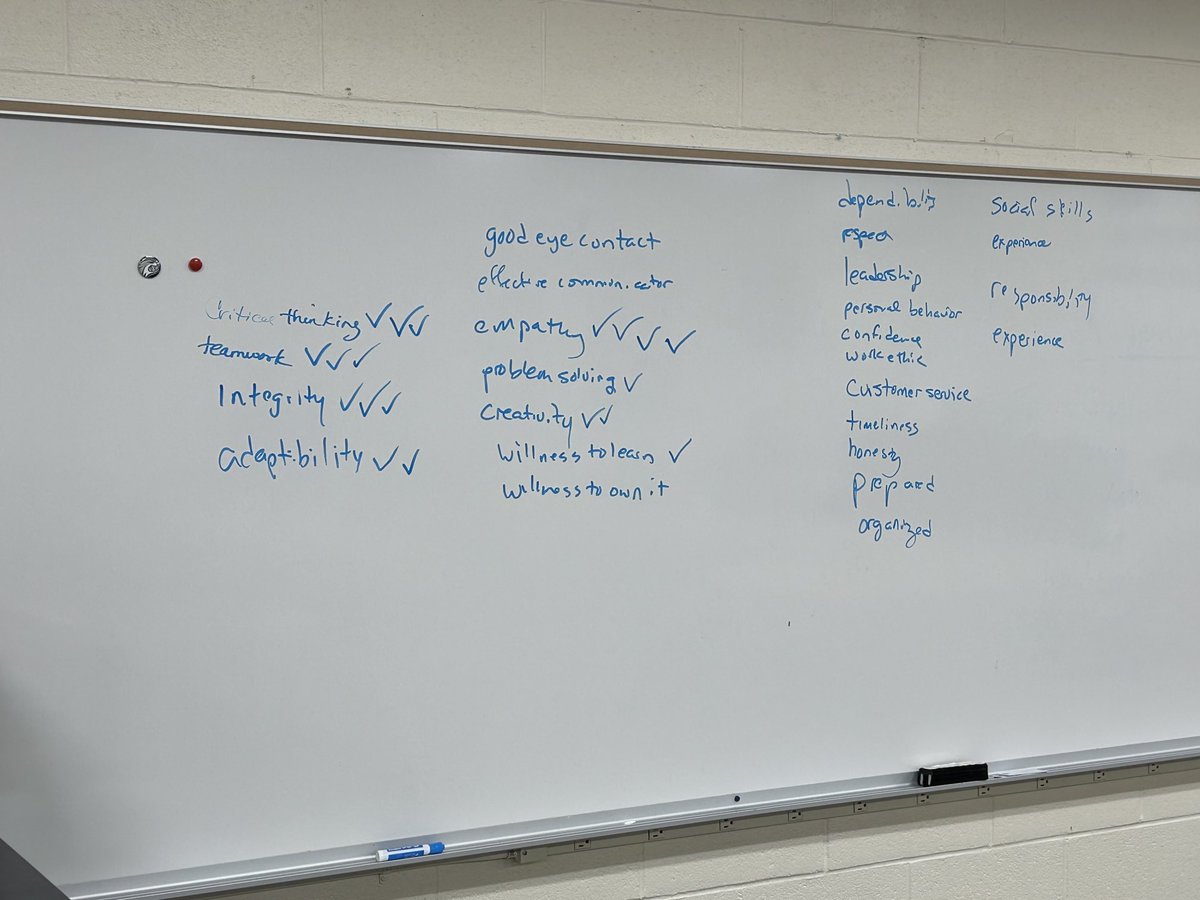 critical thinking ✓✓✓
teamwork ✓✓✓
Integrity ✓✓✓
adaptibility ✓✓
good eye contact
effective communicator
empathy ✓✓✓✓
problem solving ✓
Creativity ✓✓
willness to learn ✓
willness to own it
dependibility
respect
leadership
personal behavior
confidence
work ethic
Customer service
timeliness
honesty
prepared
organized
Social skills
experience
responsibility
experience